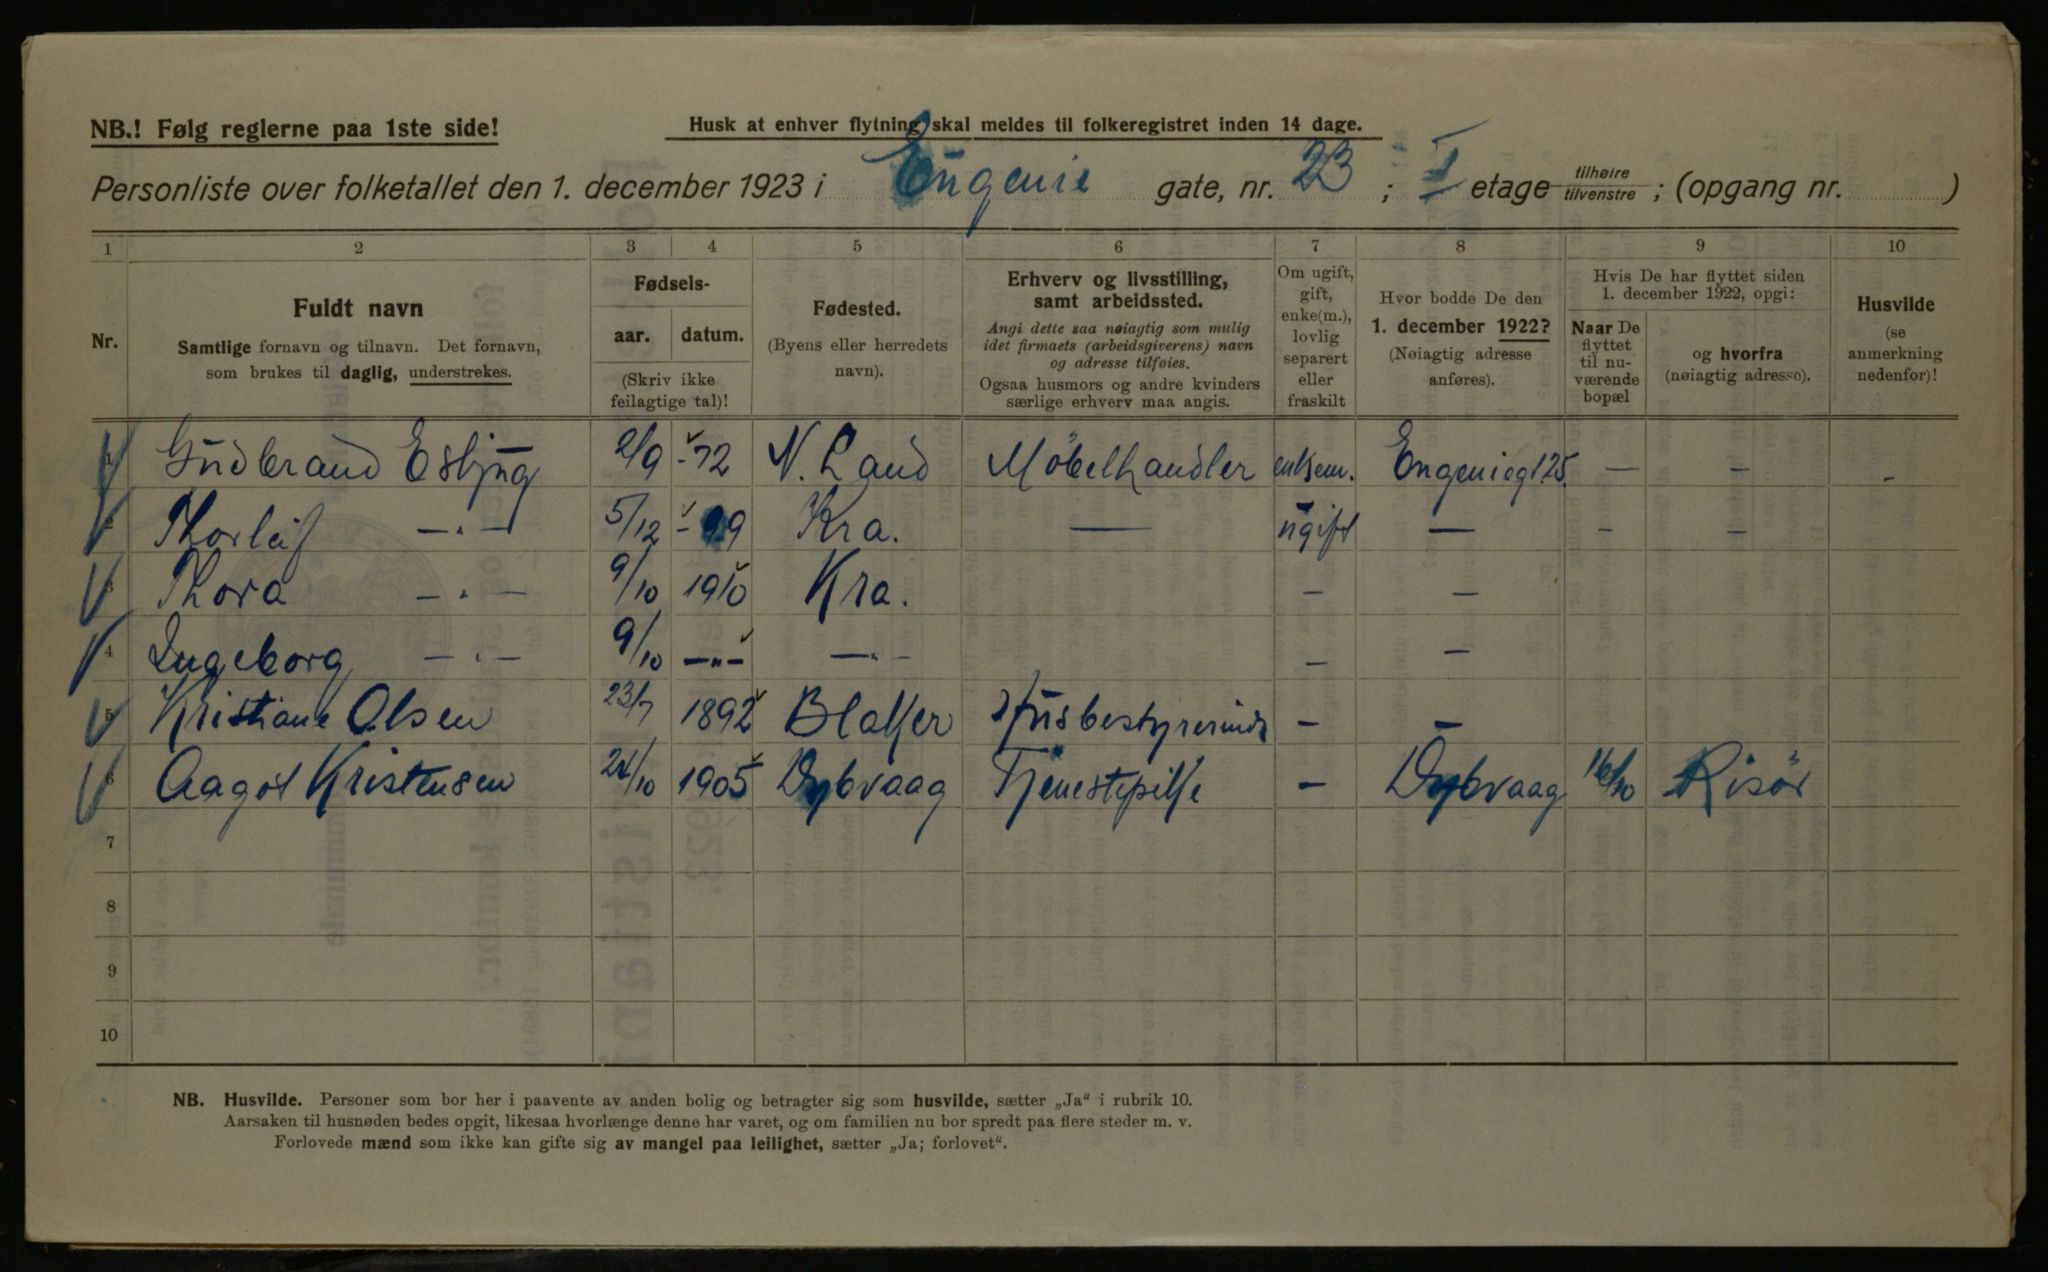 NB.! Følg reglerne paa 1ste side!
Husk at enhver flytning skal meldes til folkeregistret inden 14 dage.
Personliste over folketallet den 1. december 1923 i Eugenie gate, nr. 23 ; I etage tilhøire tilvenstre ; (opgang nr. )
1 2 3 4 5 6 7 8 9 10
Nr.
Fuldt navn
Samtlige fornavn og tilnavn. Det fornavn,
som brukes til daglig, understrekes.
Fødsels-
aar. datum.
(Skriv ikke
feilagtige tal)!
Fødested.
(Byens eller herredets
navn).
Erhverv og livsstilling,
samt arbeidssted.
Angi dette saa nøiagtig som mulig
idet firmaets (arbeidsgiverens) navn
og adresse tilføies.
Ogsaa husmors og andre kvinders
særlige erhverv maa angis.
Om ugift,
gift,
enke(m.),
lovlig
separert
eller
fraskilt
Hvor bodde De den
1. december 1922?
(Nøiagtig adresse
anføres).
Hvis De har flyttet siden
1. december 1922, opgi:
Naar De
flyttet
til nu-
værende
bopæl
og hvorfra
(nøiagtig adresse).
Husvilde
(se
anmerkning
nedenfor)!
1 Gudbrand Esbjug 2/9 -72 N. Land Möbelhandler enkem. Eugeniegt 25. — – -
2 Thorleif —"— 5/12 - 99 Kra. — ugift — – –
3 Thora —"— 9/10 1910 Kra. – –
4 Ingeborg —"— 9/10 —"— —"— – –
5 Kristiane Olsen 23/7 1892 Blakjer Husbestyrerinde – –
6 Aagot Kristensen 24/10 1905 Dybvaag Tjenestepike – Dybvaag 16/10 Risör
7
8
9
10
NB. Husvilde. Personer som bor her i paavente av anden bolig og betragter sig som husvilde, sætter „Ja“ i rubrik 10.
Aarsaken til husnøden bedes opgit, likesaa hvorlænge denne har varet, og om familien nu bor spredt paa flere steder m. v.
Forlovede mænd som ikke kan gifte sig av mangel paa leilighet, sætter „Ja; forlovet“.